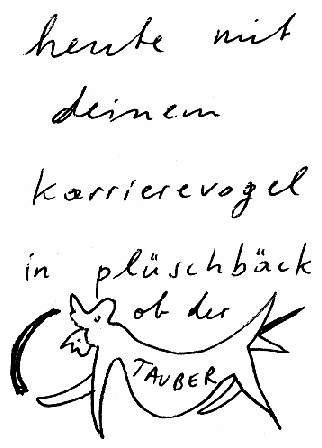 heute mit
deinem
karrierevogel
in plüschbäck
ob der
TAUBER